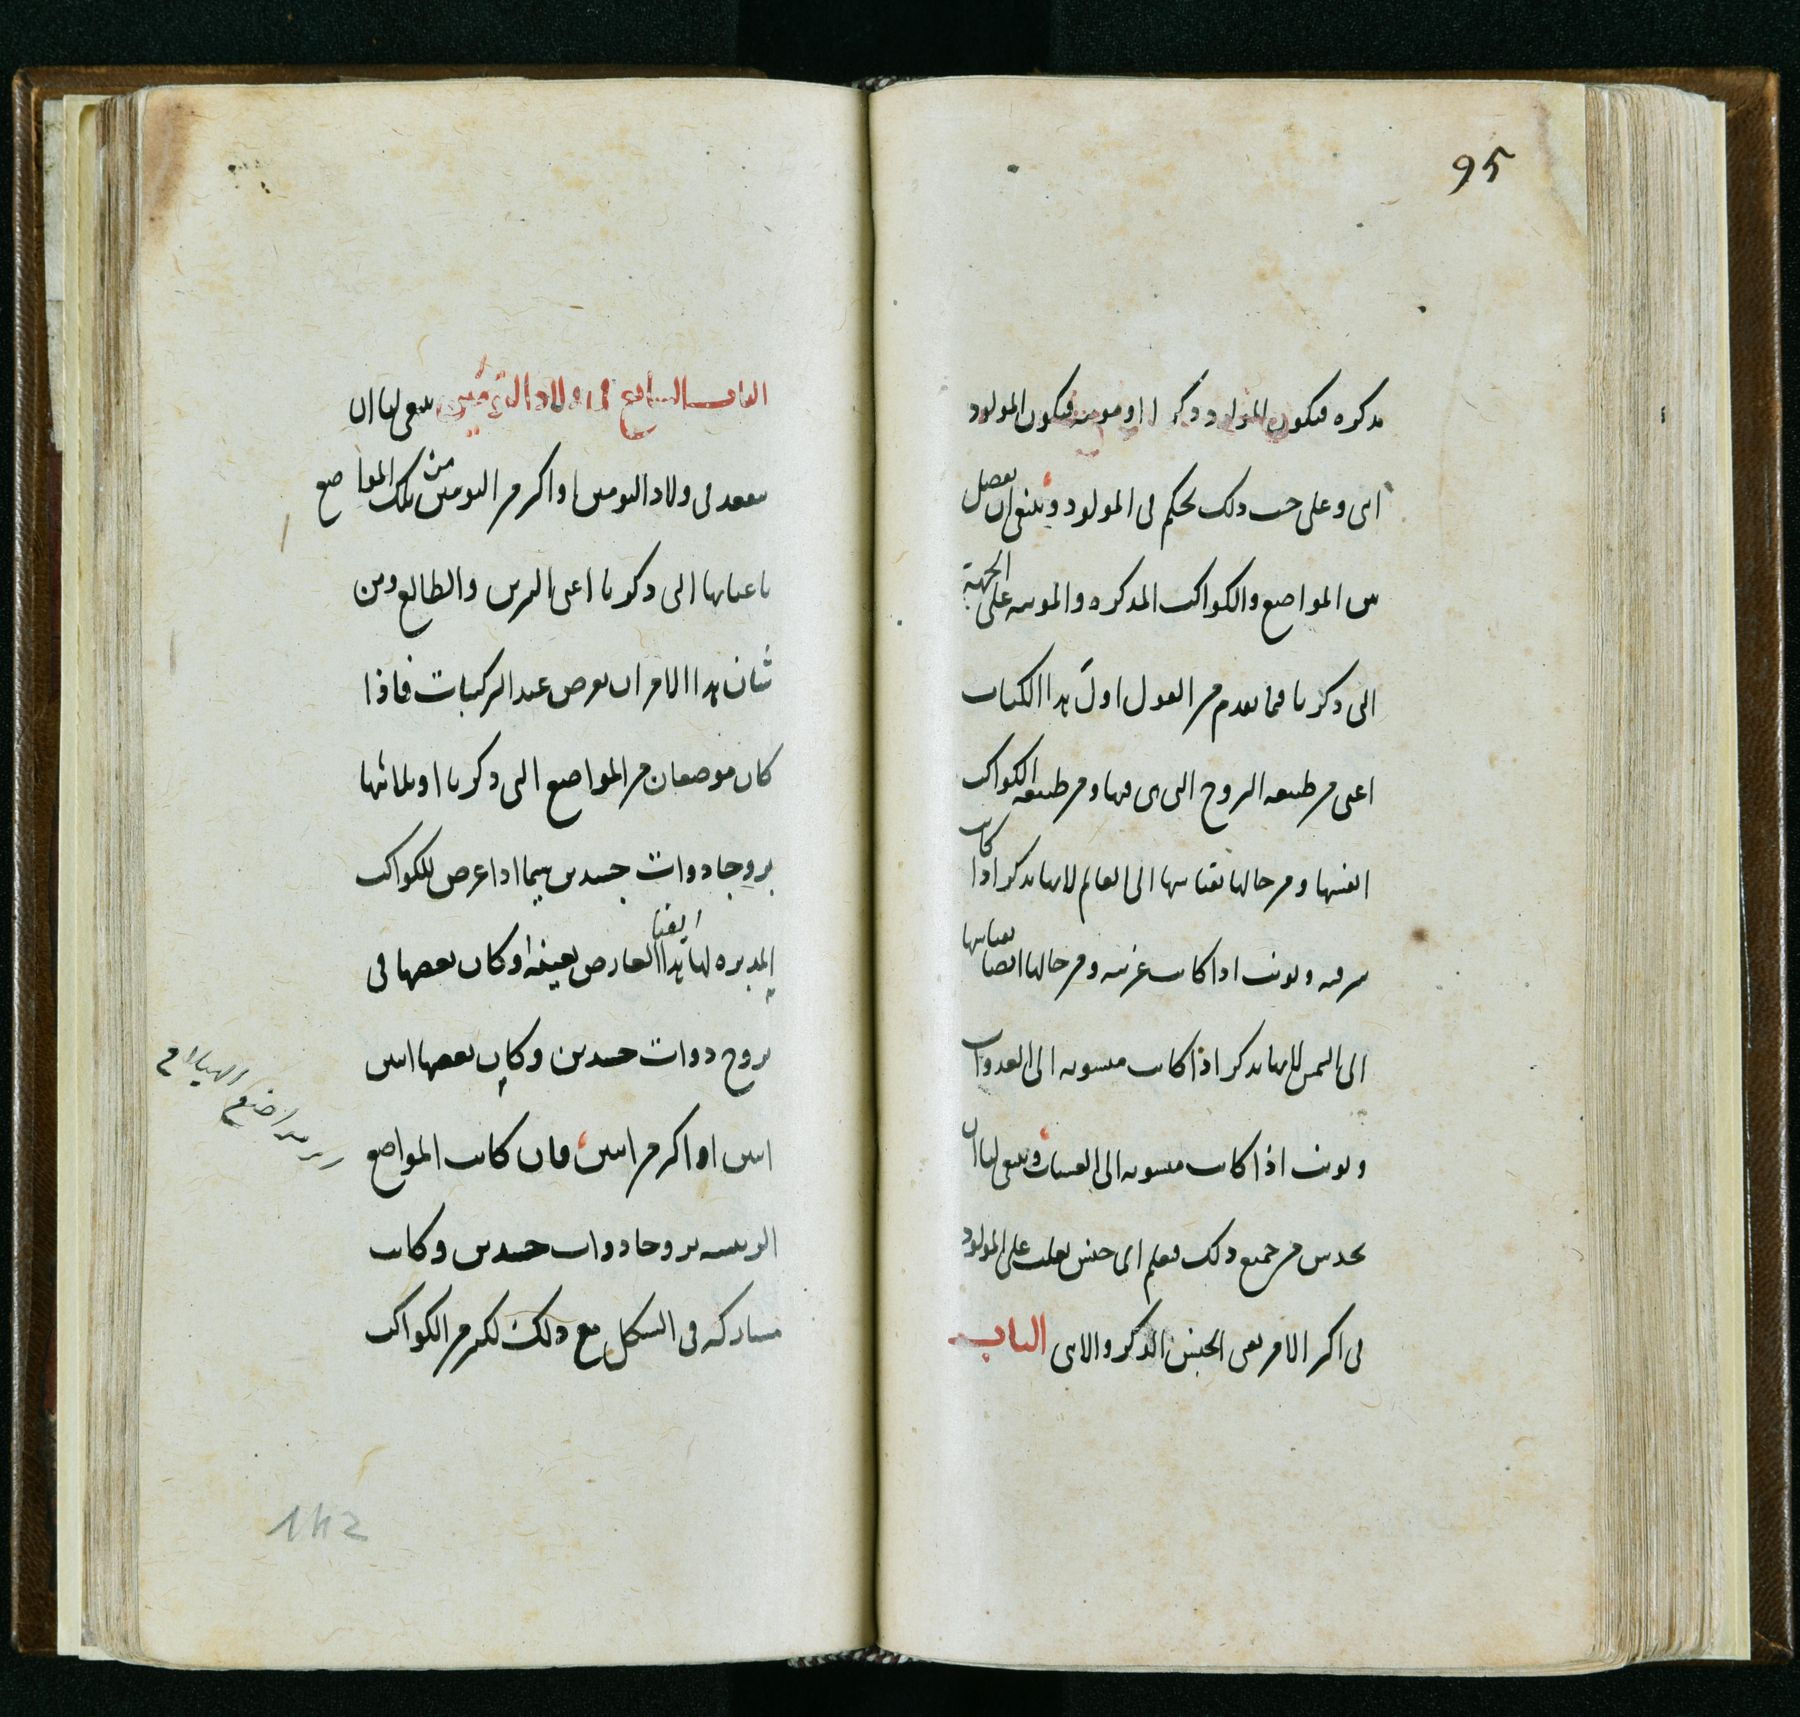 95
مذكره فيكون المولود ذكرا او مونثه فيكون المولود
انثى وعلى حسب ذلك تحكم في المولود وينبغي ان نفصل
بين المواضع والكواكب المذكره والمونثه على الجهة
التي ذكرنا فيما تقدم من القول اول هذا الكتاب
اعني من طبيعه البروج التي هي فيها ومن طبيعه الكواكب
انفسها ومن حالها بقياسها الى العالم لانها تذكر اذا كانت
شرقيه وتونث اذا كانت غربيه ومن حالها ايضا بقياسها
الى الشمس لانها تذكر اذا كانت منسوبه الى الغدوات
وتونث اذا كانت منسوبه الى العشيات وينبغي لنا ان
نحدس من جميع ذلك فنعلم اي جنس يغلب على المولود
في اكثر الامر يعني الجنس الذكر والانثى الباب
الباب السابع في اولاد التؤمين ينبغي لنا ان
نتفقد في ولاد التومين او اكثر من التومين من تلك المواضع
باعيانها التي ذكرنا اعني النيرين والطالع ومن
شان هذا الامر ان يعرض عند التركيبات فاذا
كان موضعان من المواضع التي ذكرنا او ثلاثتها
بروجا ذوات جسدين سيما اذا عرض للكواكب
المدبره لها ايضا هذا العارض بعينه او كان بعضها في
بروج ذوات جسدين وكان بعضها اثنين
اثنين او اكثر من اثنين فان كانت المواضع
الرئيسيه بروجا ذوات جسدين وكانت
مشاركه في الشكل مع ذلك لكثير من الكواكب
142